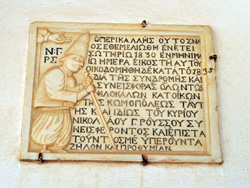 Ν·Γ·
ΡΣ
ΥΠΕΡΙΚΑΛΛΗΣ ΟΥΤΟΣ Ν
ΟΣ ΕΘΕΜΕΛΙΩΘΗ ΕΝ ΕΤΕΙ
ΣΩΤΗΡΙΩ 1830 ΕΝ ΜΗΝΙ
ΗΜΕΡΑ ΕΙΚΟΣΤΗ ΑΥΤΟΥ
ΟΙΚΟΔΟΜΗΘΗ ΔΕ ΚΑΤΑ ΤΟ 1835
ΔΙΑ ΤΗΣ ΣΥΝΔΡΟΜΗΣ ΚΑΙ
ΣΥΝΕΙΣΦΟΡΑΣ ΟΛΩΝ ΤΩΝ
ΦΙΛΟΚΑΛΩΝ ΚΑΤΟΙΚΩΝ
ΤΗΣ ΚΩΜΟΠΟΛΕΩΣ ΤΑΥ
ΤΗΣ Κ ΙΔΙΩΣ ΤΟΥ ΚΥΡΙΟΥ
ΝΙΚΟΛΑΟΥ Γ ΡΟΥΣΣΟΥ ΣΥ
ΝΕΙΣΦΕΡΟΝΤΟΣ ΚΑΙ ΕΠΙΣΤΑ
ΤΟΥΝΤΟΣ ΜΕ ΥΠΕΡΟΥΝΤΑ
ΖΗΛΟΝ ΚΑΙ ΠΡΟΘΥΜΙΑΝ